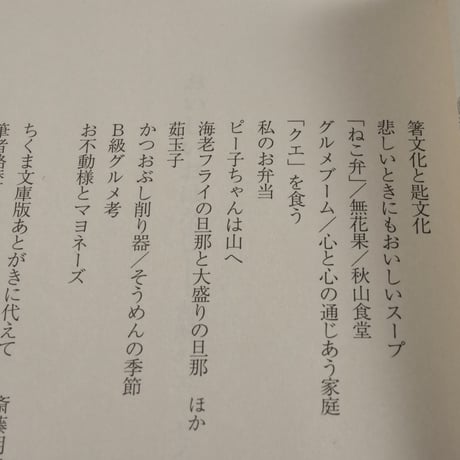 箸文化と匙文化
悲しいときにもおいしいスープ
「ねこ弁」/無花果/秋山食堂
グルメブーム/心と心の通じあう家庭
「クエ」を食う
私のお弁当
ピー子ちゃんは山へ
海老フライの旦那と大盛りの旦那 ほか
茹玉子
かつおぶし削り器/そうめんの季節
B級グルメ考
お不動様とマヨネーズ
ちくま文庫版あとがきに代えて 斎藤明
筆者略歴